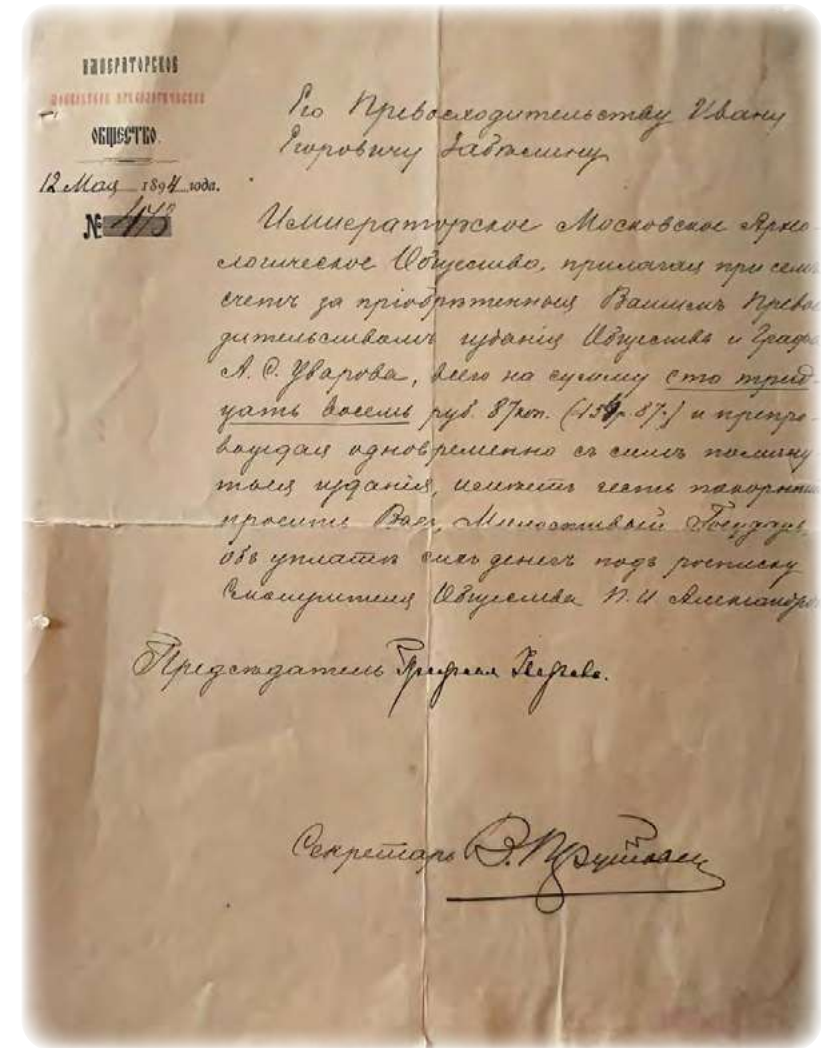 ИМПЕРАТОРСКОЕ
МОСКОВСКОЕ АРХЕОЛОГИЧЕСКОЕ
ОБЩЕСТВО.
12 Мая 1894 года.
№ 473
Его Превосходительству Ивану
Егоровичу Забѣлину
Императорское Московское Архео-
логическое Общество, прилагая при семъ
счетъ за пріобрѣтенныя Вашимъ Превос
дительствомъ изданія Общества и Графа
А. С. Уварова, всего на сумму сто трид-
цать восемь руб. 87 коп. (138р. 87.) и препро-
вождая одновременно съ симъ помяну-
тыя изданія, имѣетъ честь покорнѣйше
просить Васъ, Милостивый Государь,
объ уплатѣ сихъ денегъ подъ росписку
Экзекутора Общества П. И. Александро
Предсѣдатель Графиня Уварова.
Секретарь В. Трутовскій